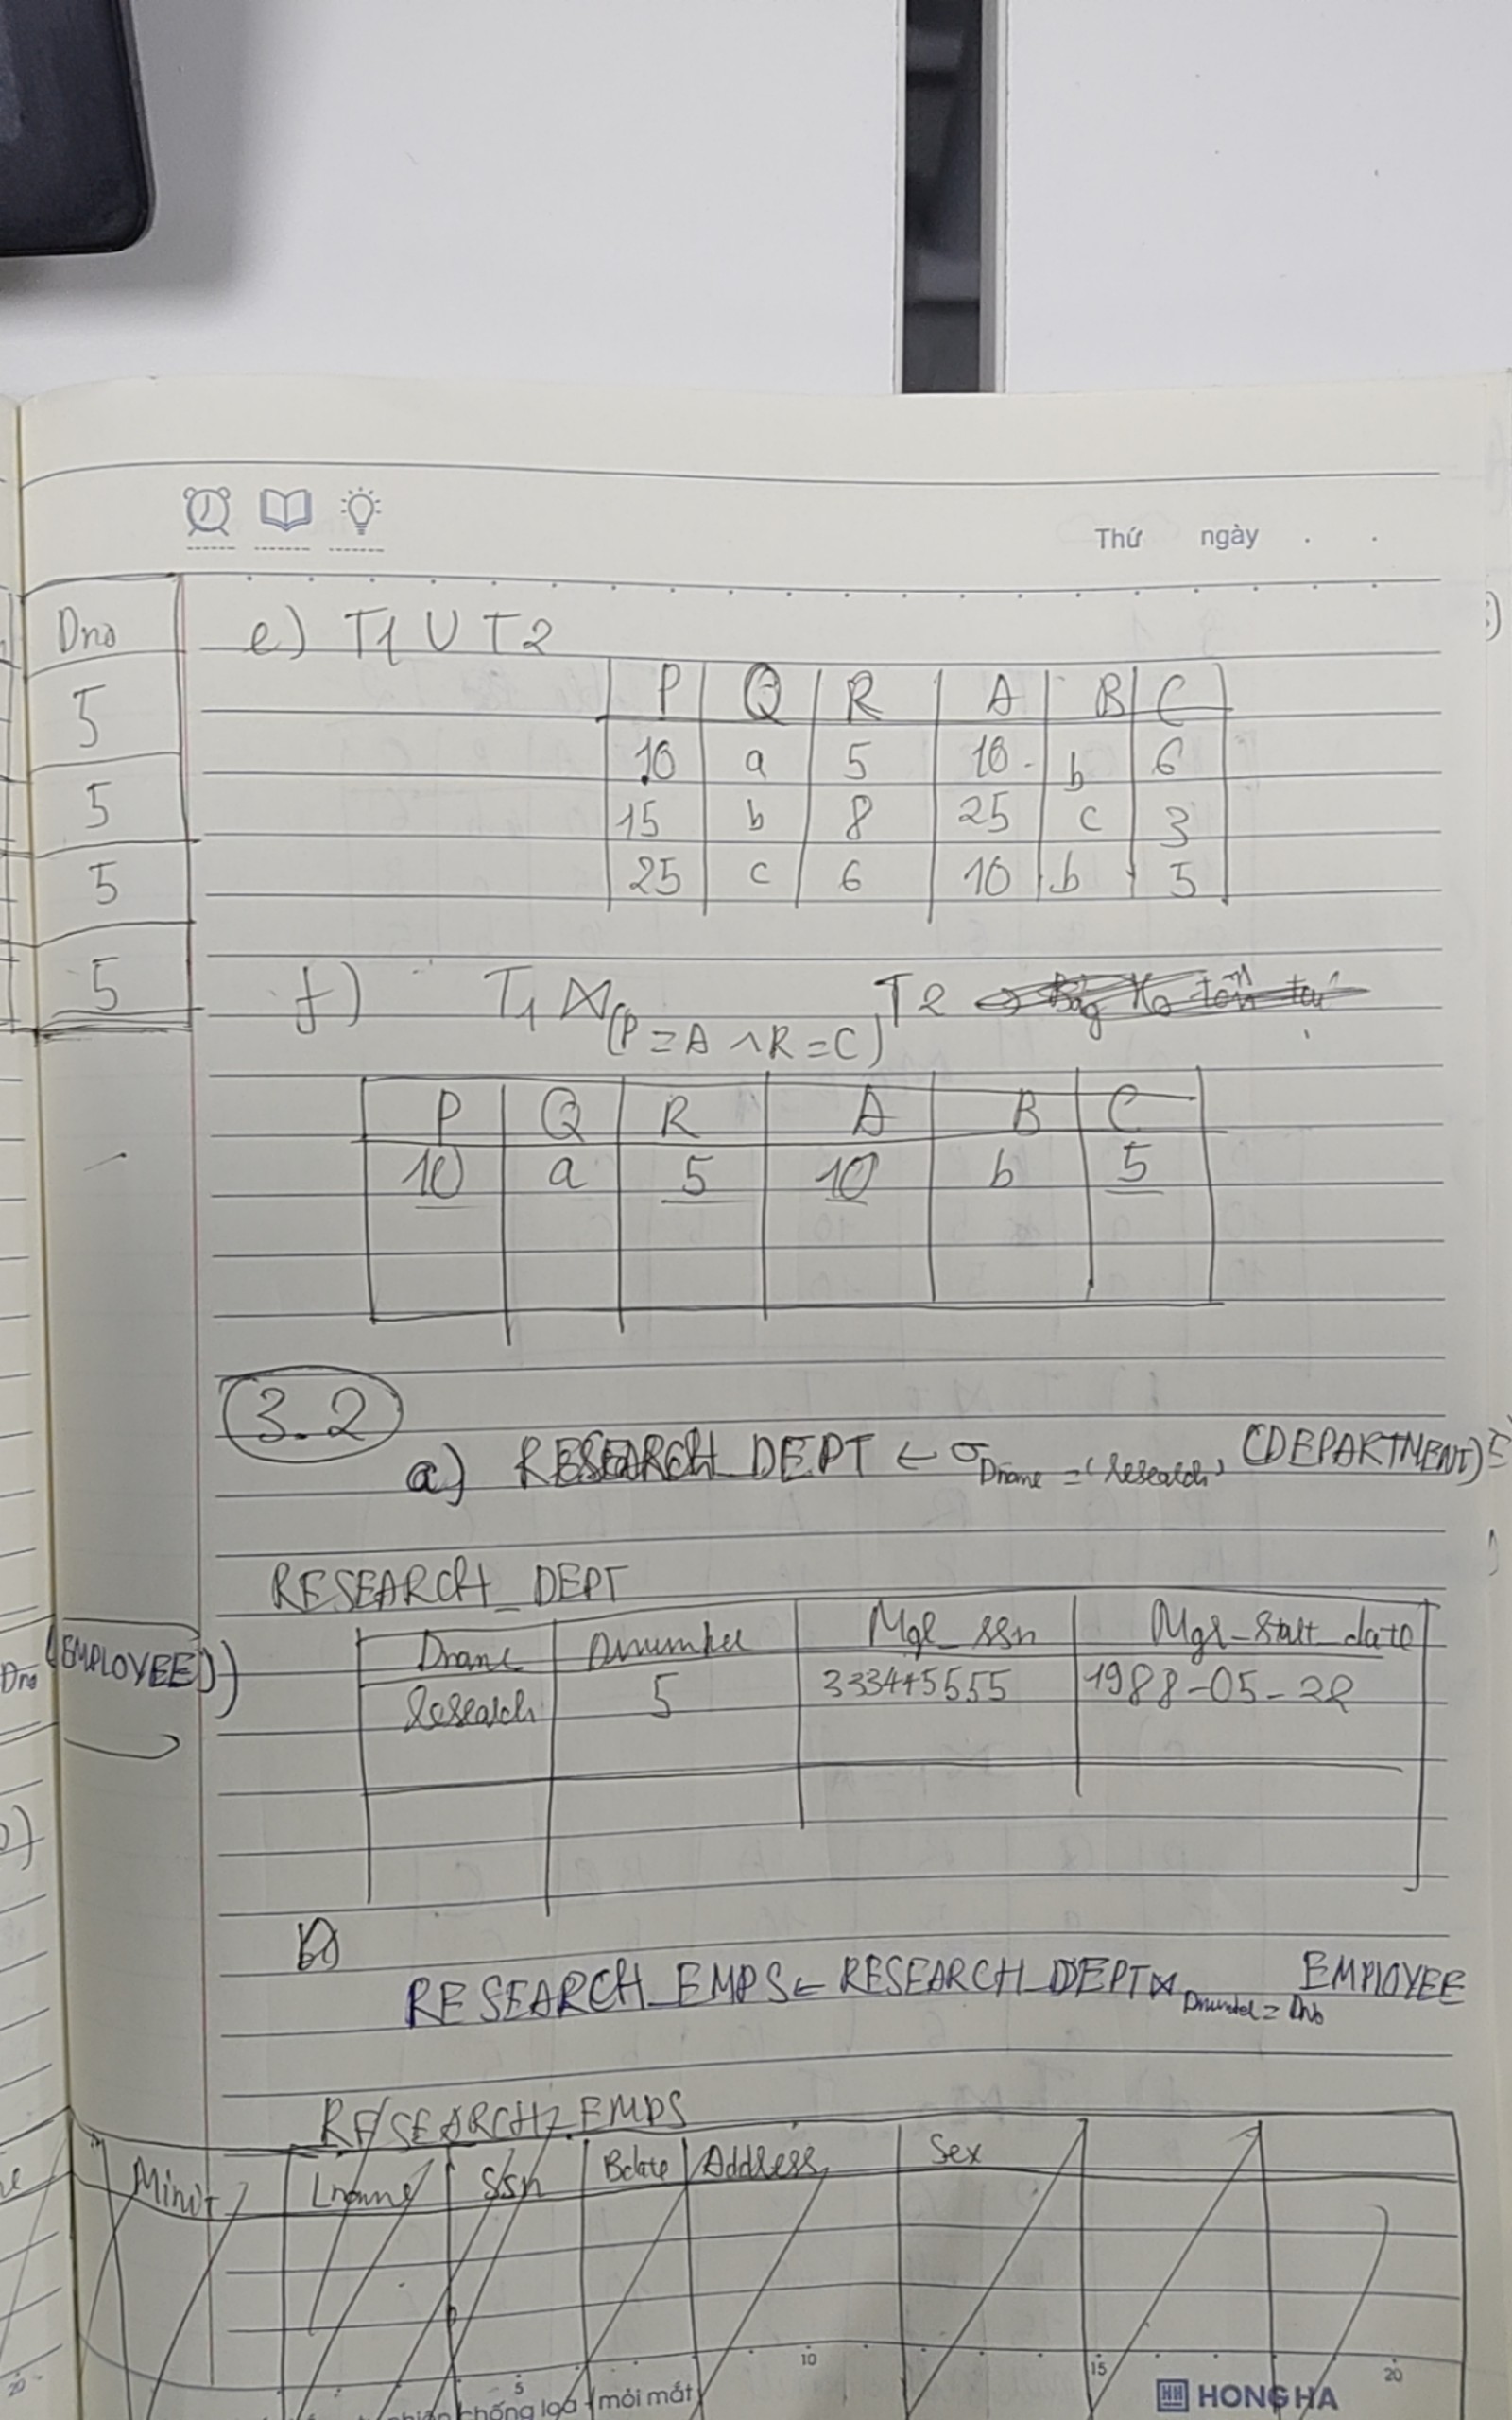 Thứ ngày . .
Dno
5
5
5
5
e) T1 U T2
P Q R A B C
10 a 5 10 b 6
15 b 8 25 c 3
25 c 6 10 b 5
f) T1 ⋈(P = A ∧ R = C) T2
P Q R A B C
10 a 5 10 b 5
3.2
a) RESEARCH_DEPT ← σDname = 'research' (DEPARTMENT)
RESEARCH_DEPT
Dname Dnumber Mgr_ssn Mgr_start_date
research 5 333445555 1988-05-22
(EMPLOYEE))
Dno
b)
RESEARCH_EMPS ← RESEARCH_DEPT ⋈Dnumber = Dno EMPLOYEE
RESEARCH_EMPS
Minit Lname Ssn Bdate Address Sex
5 10 15 20
chống loá - mỏi mắt
HONG HA
20